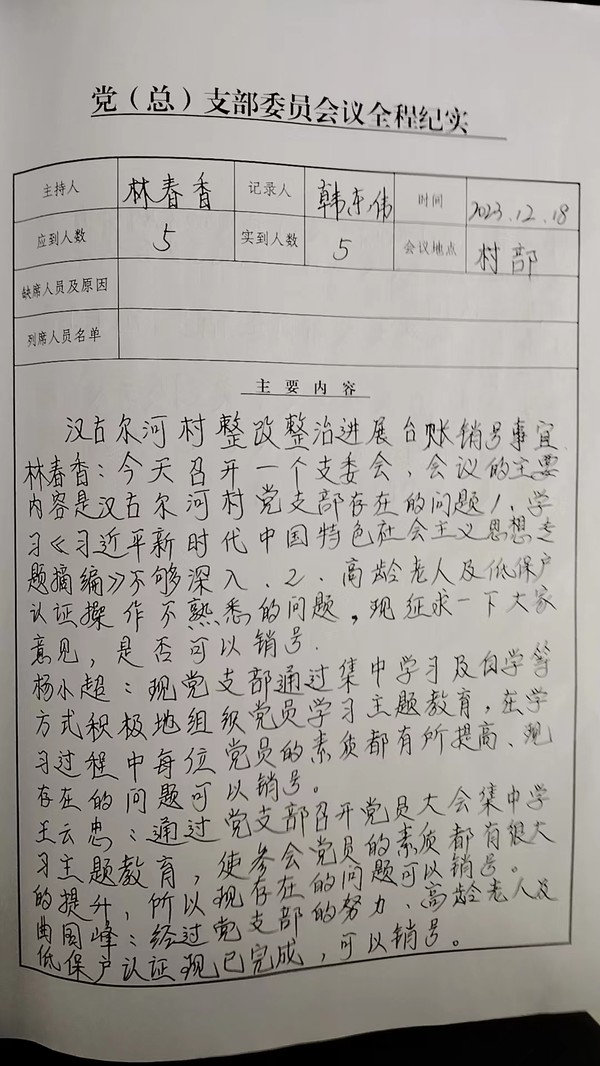 党（总）支部委员会议全程纪实
主持人 林春香 记录人 韩东伟 时间 2023.12.18
应到人数 5 实到人数 5 会议地点 村部
缺席人员及原因
列席人员名单
主要内容
汉古尔河村整改整治进展台账销号事宜
林春香：今天召开一个支委会，会议的主要
内容是汉古尔河村党支部存在的问题1、学
习《习近平新时代中国特色社会主义思想专
题摘编》不够深入、2、高龄老人及低保户
认证操作不熟悉的问题，现征求一下大家
意见，是否可以销号.
杨小超：现党支部通过集中学习及自学等
方式积极地组织党员学习主题教育，在学
习过程中每位党员的素质都有所提高、现
存在的问题可以销号。
王云忠：通过党支部召开党员大会集中学
习主题教育，使参会党员的素质都有很大
的提升，所以现存在的问题可以销号。
曲国峰：经过党支部的努力、高龄老人及
低保户认证现已完成，可以销号。